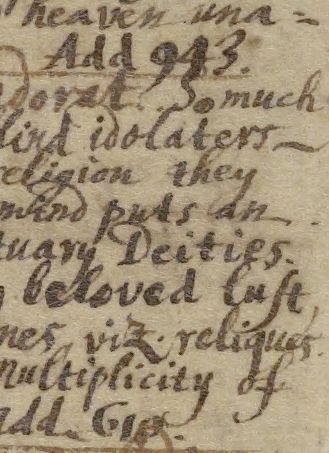 heaven una=
Add 943.
dorat. So much
lind idolaters
religion they
mind puts an
tuary Deities.
beloved lust,
nes, viz. reliques
Multiplicity of
Add. 610.